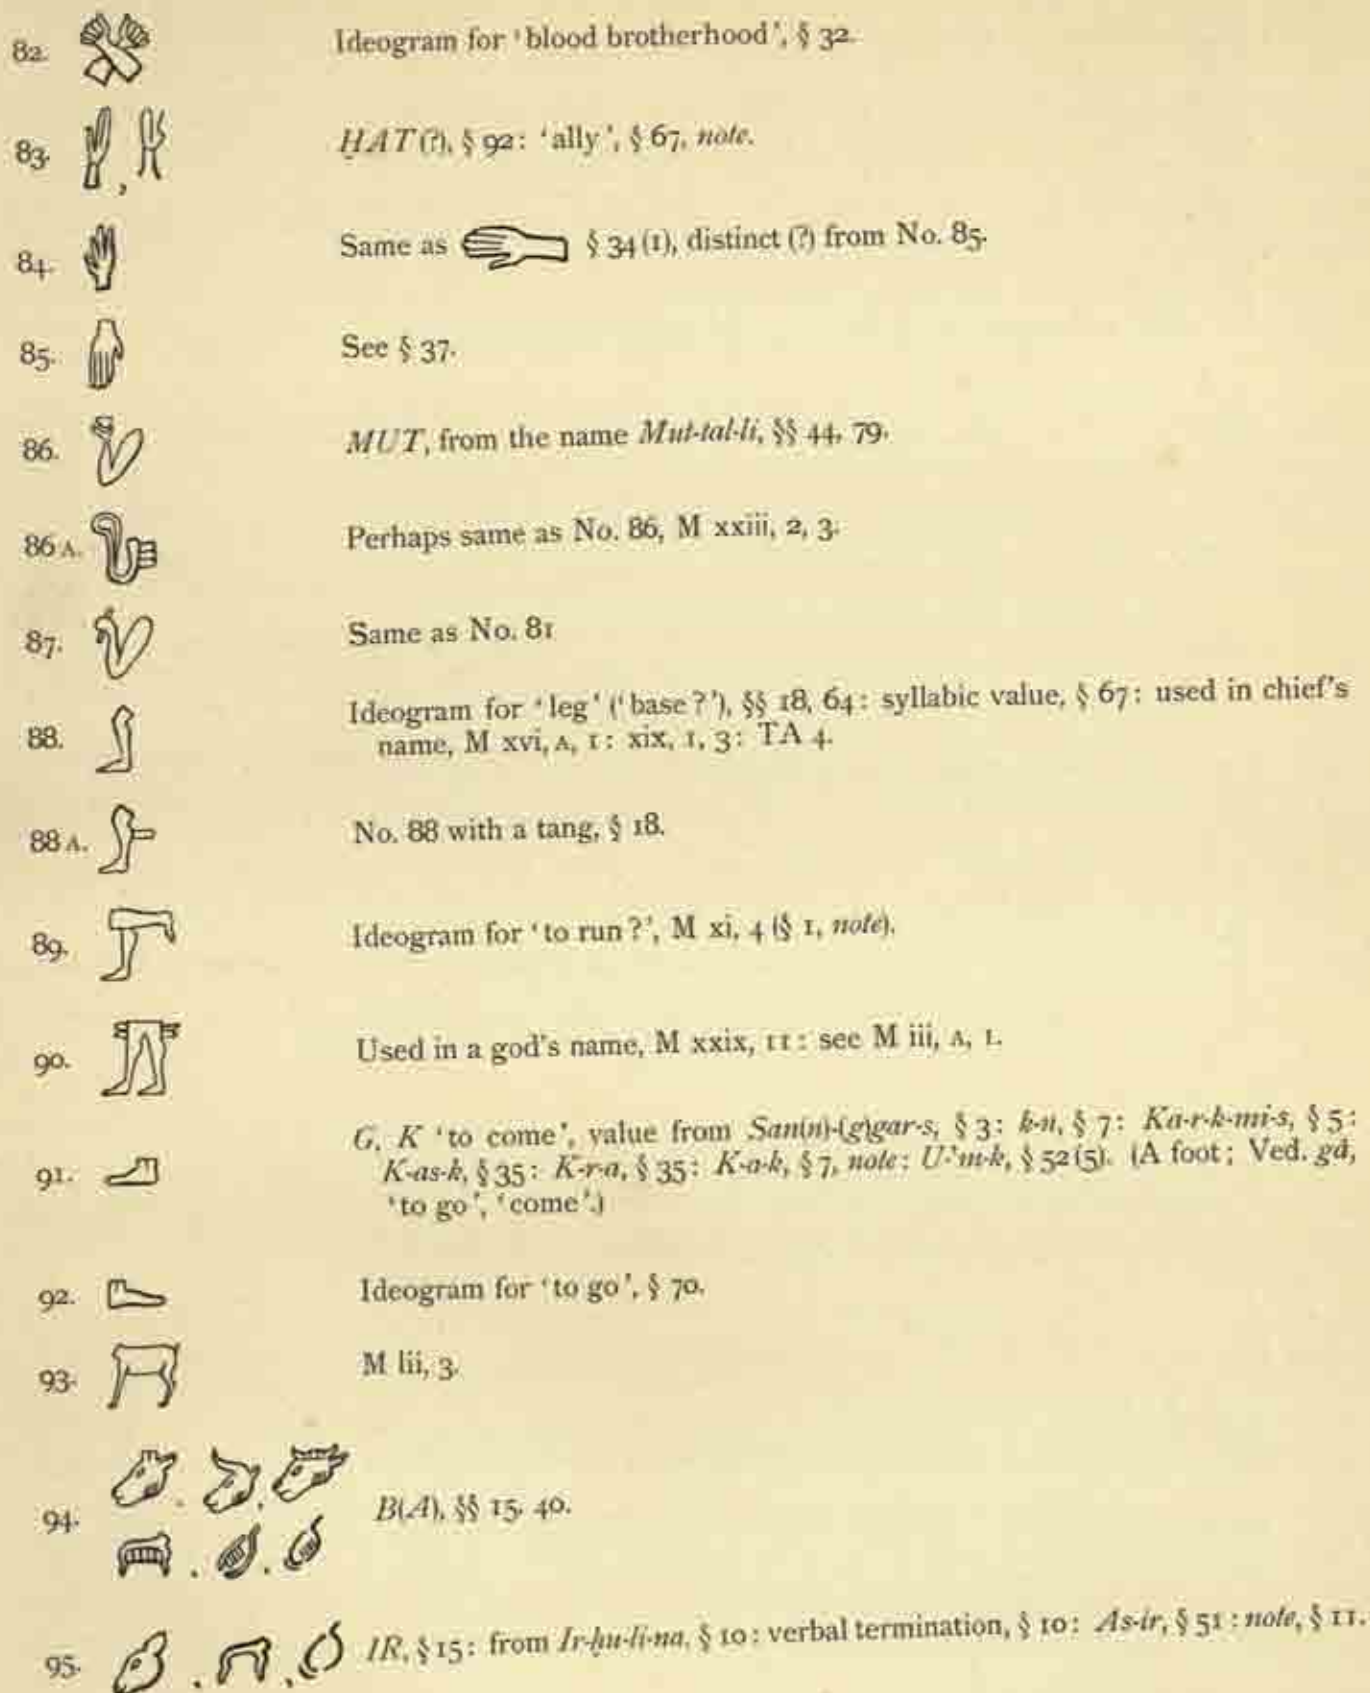 82. Ideogram for 'blood brotherhood', § 32.
83. , ḪAT (?), § 92: 'ally', § 67, note.
84. Same as § 34 (1), distinct (?) from No. 85.
85. See § 37.
86. MUT, from the name Mut-tal-li, §§ 44, 79.
86 A. Perhaps same as No. 86, M xxiii, 2, 3.
87. Same as No. 81
88. Ideogram for 'leg' ('base?'), §§ 18, 64: syllabic value, § 67: used in chief's
name, M xvi, A, 1: xix, 1, 3: TA 4.
88 A. No. 88 with a tang, § 18.
89. Ideogram for 'to run?', M xi, 4 (§ 1, note).
90. Used in a god's name, M xxix, 11: see M iii, A, 1.
91. G, K 'to come', value from San(n)-(g)gar-s, § 3: k-n, § 7: Ka-r-k-mi-s, § 5:
K-as-k, § 35: K-r-a, § 35: K-a-k, § 7, note: U-'m-k, § 52 (5). (A foot; Ved. gā,
'to go', 'come'.)
92. Ideogram for 'to go', § 70.
93. M lii, 3.
94. B(A), §§ 15, 40.
95. IR, § 15: from Ir-ḫu-li-na, § 10: verbal termination, § 10: As-ir, § 51: note, § 11.